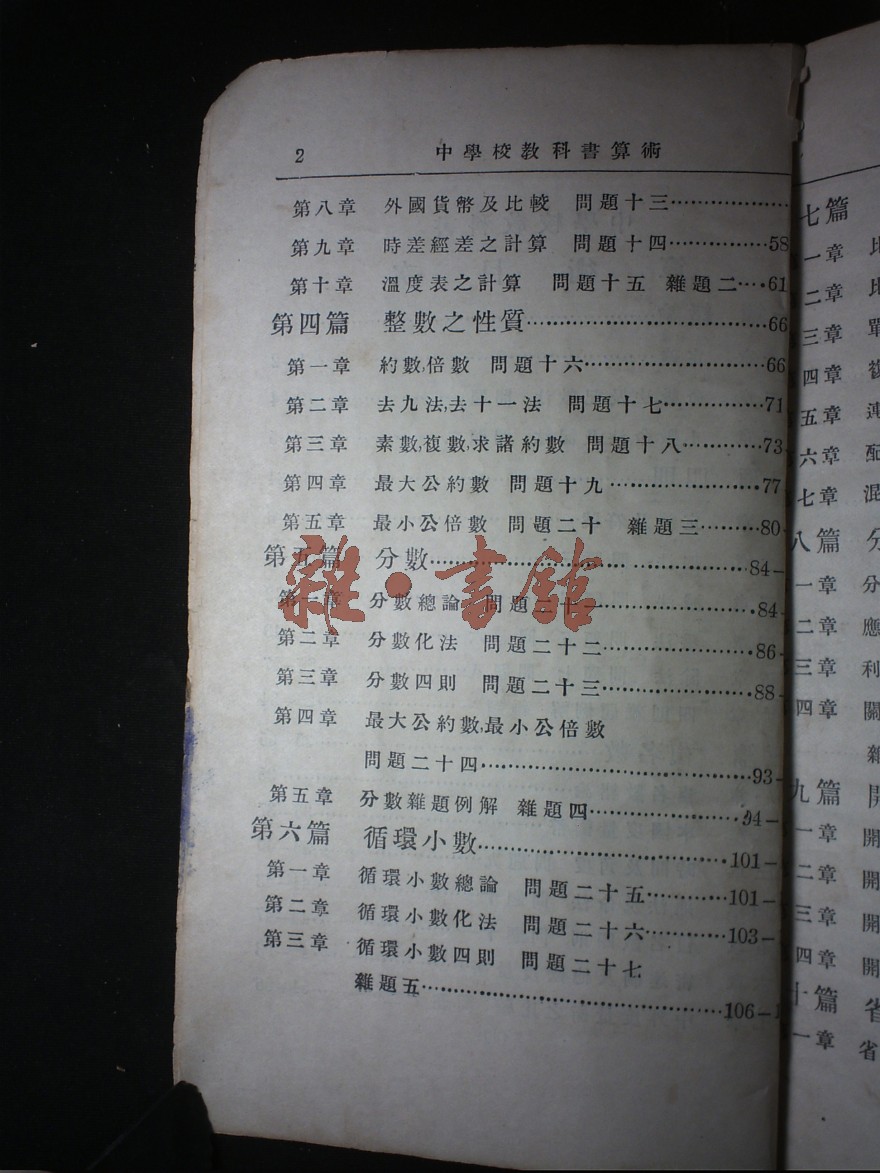 2 中學校教科書算術
第八章 外國貨幣及比較 問題十三………………
第九章 時差經差之計算 問題十四………………58
第十章 溫度表之計算 問題十五 雜題二…·61
第四篇 整數之性質………………………………66
第一章 約數,倍數 問題十六………………………66
第二章 去九法,去十一法 問題十七………………71
第三章 素數,複數,求諸約數 問題十八…………73
第四章 最大公約數 問題十九……………………77
第五章 最小公倍數 問題二十 雜題三………80-
第五篇 分數……………………………………84-
第一章 分數總論 問題二十一……………………84-
第二章 分數化法 問題二十二……………………86-
第三章 分數四則 問題二十三……………………88-
第四章 最大公約數,最小公倍數
問題二十四………………………………93-
第五章 分數雜題例解 雜題四………………94-
第六篇 循環小數………………………………101-
第一章 循環小數總論 問題二十五…………101-
第二章 循環小數化法 問題二十六…………103-
第三章 循環小數四則 問題二十七
雜題五………………………………………106-
雜·書館
七篇
一章 比
二章 比
三章 單
四章 複
五章
六章 配
七章 混
八篇 分
一章 分
二章 應
三章 利
四章 關
雜
九篇 開
一章 開
二章 開
三章 開
四章 開
十篇 省
一章 省